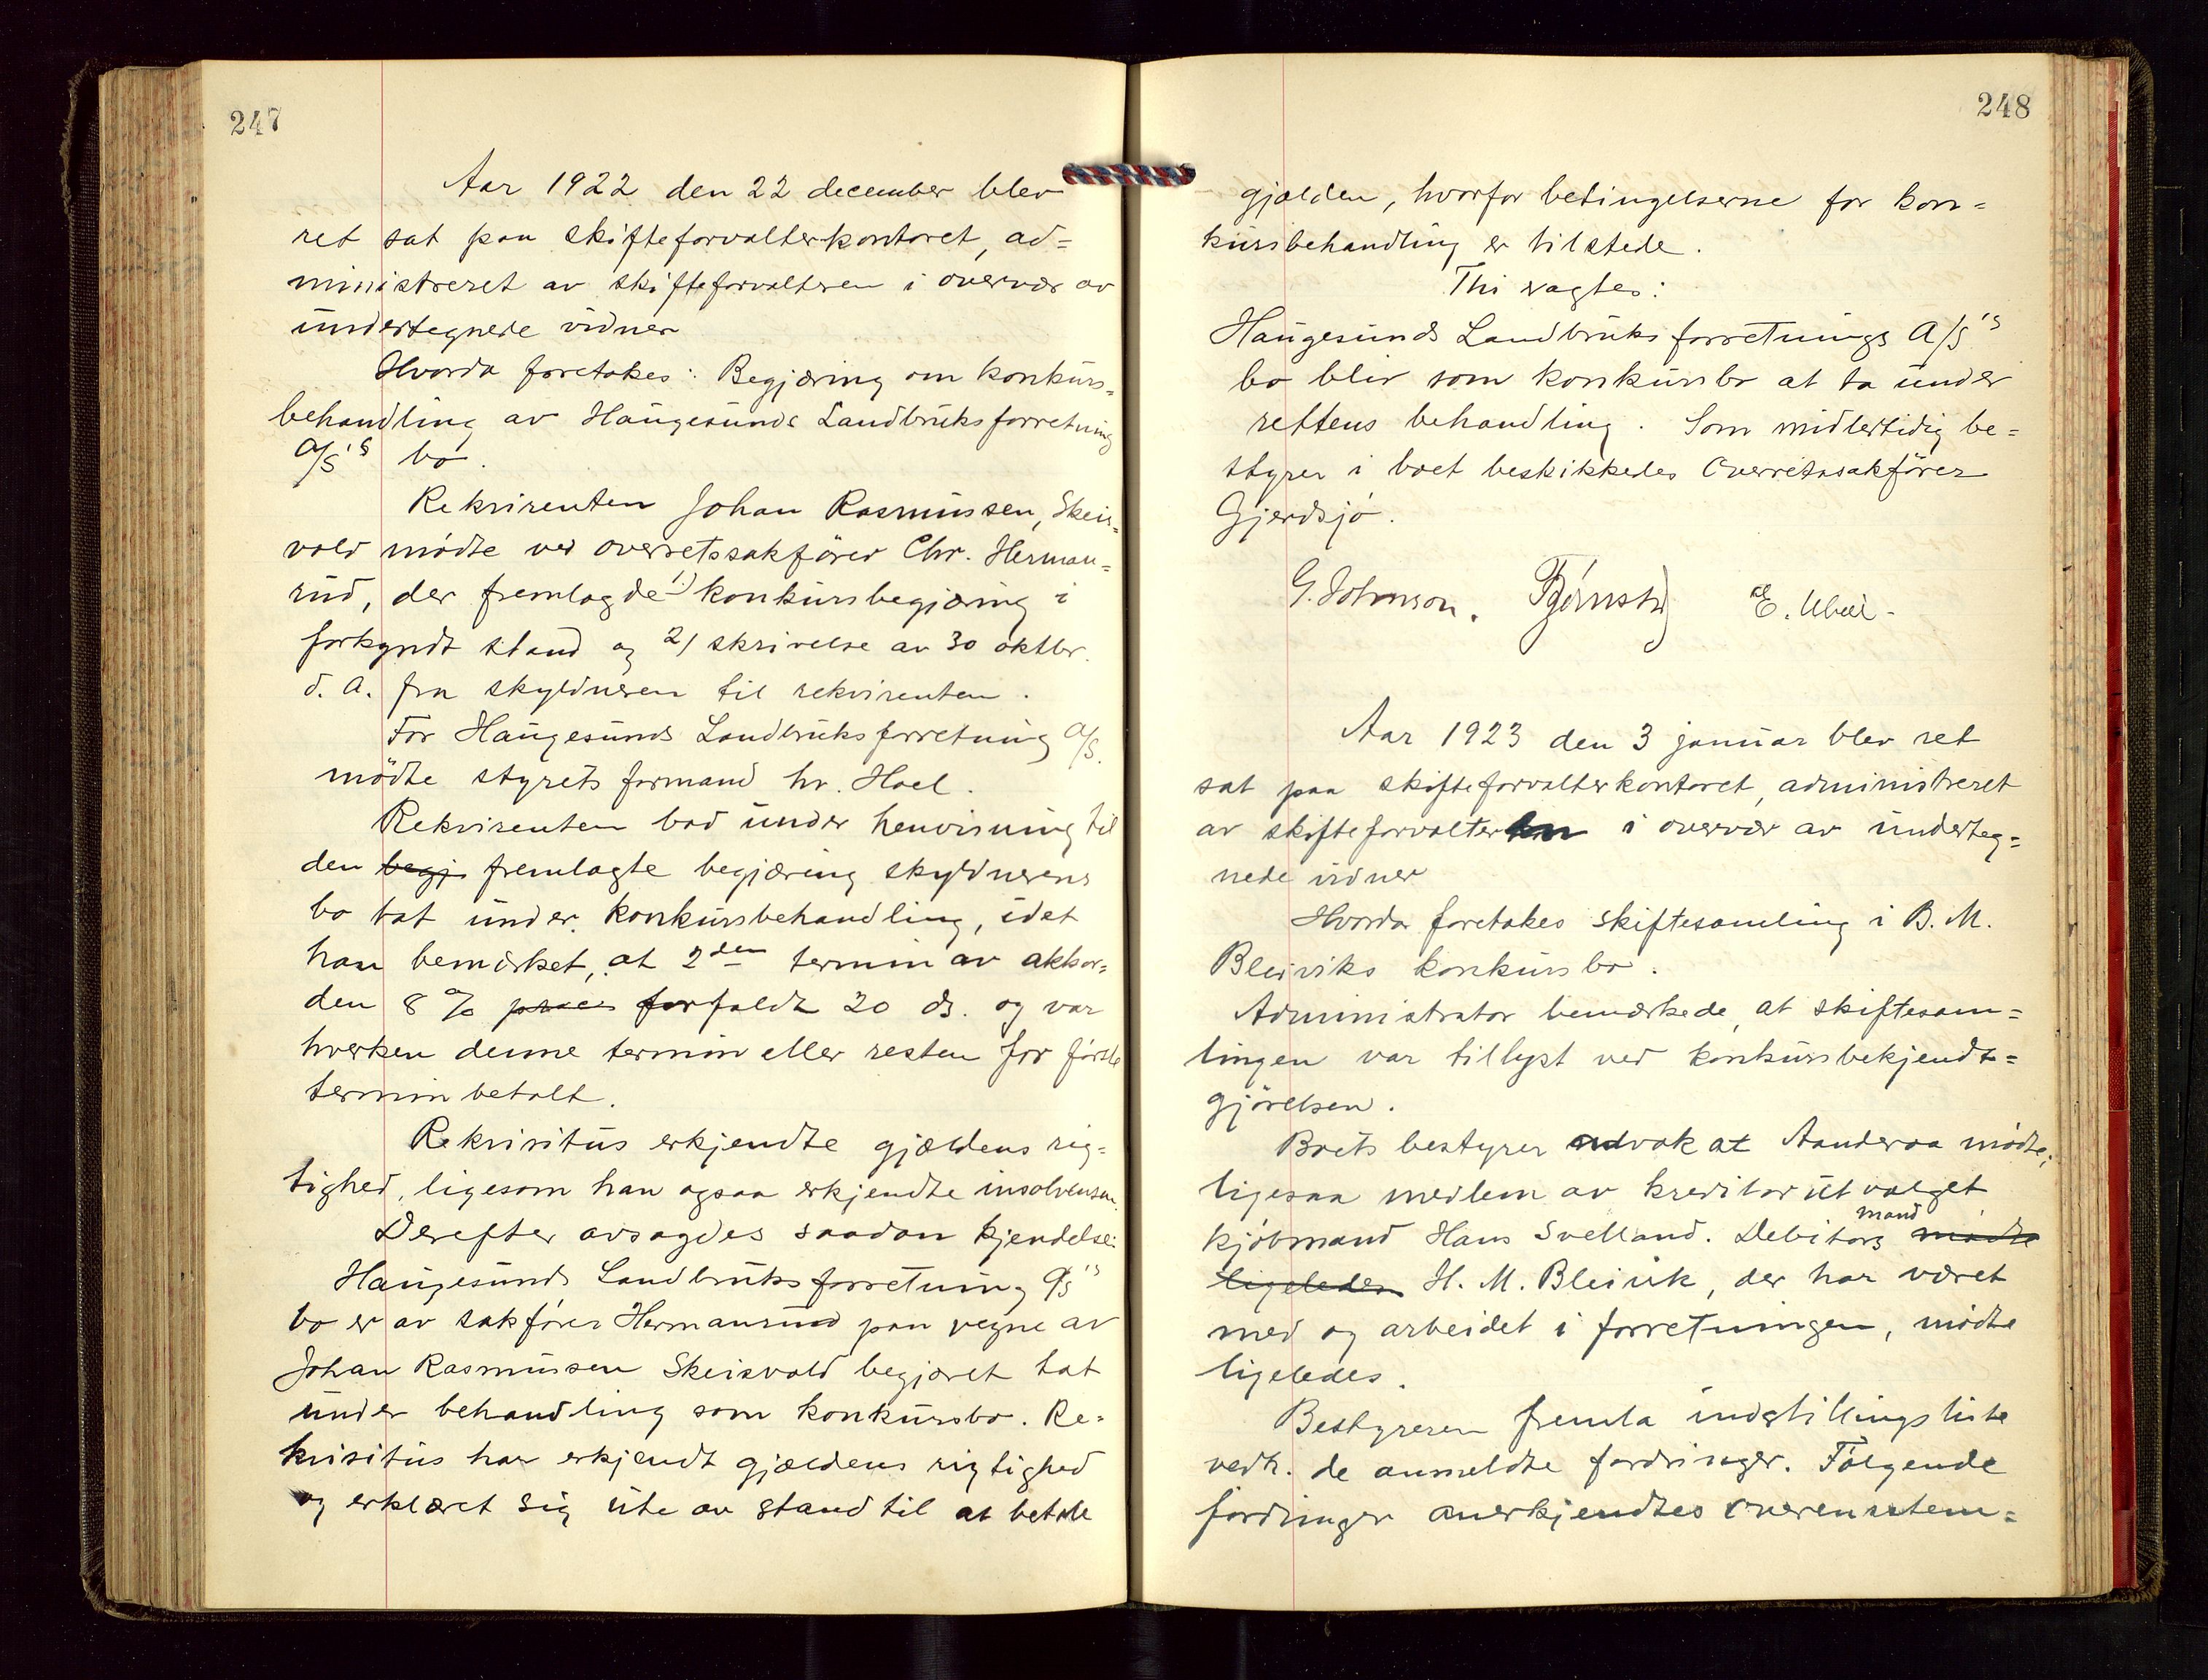 247
Aar 1922 den 22 december blev
ret sat paa skifteforvalterkontoret, ad=
ministreret av skifteforvalteren i overvær av
undertegnede vidner
Hvorda foretokes: Begjæring om konkurs=
behandling av Haugesunds Landbruksforretning
A/S's bo.
Rekvirenten Johan Rasmussen, Skeis=
vold mödte ved overretssakförer Chr. Herman=
rud, der fremlagde 1) konkursbegjæring i
forkyndt stand og 2/ skrivelse av 30 oktbr.
d. A. fra skyldneren til rekvirenten.
For Haugesunds Landbruksforretning A/S.
mödte styrets formand hr. Hoel.
Rekvirenten bad under henvisning til
den begj. fremlagte begjæring skyldnerens
bo tat under konkursbehandling, idet
han bemerket, at 2den termin av akkor=
den 8 % forfaldt 20 ds. og var
hverken denne termin eller resten for förste
termin betalt.
Rekvisitus erkjendte gjældens rig=
tighed, ligesom han ogsaa erkjendte insolvensen.
Derefter avsagdes saadan kjendelse:
Haugesunds Landbruksforretning A/S's
bo er av sakförer Hermansrud paa vegne av
Johan Rasmussen Skeisvold begjæret tat
under behandling som konkursbo. Re=
kvisitus har erkjendt gjældens rigtighed
og erklæret sig ute av stand til at betale
248
gjælden, hvorfor betingelserne for kon=
kursbehandling er tilstede.
Thi sagtes:
Haugesunds Landbruksforretnings A/S's
bo blir som konkursbo at ta under
rettens behandling. Som midlertidig be=
styrer i boet beskikkedes Overretssakförer
Gjerdsjö.
G. Johnson.
Aar 1923 den 3 januar blev ret
sat paa skifteforvalterkontoret, administreret
av skifteforvalteren i overvær av underteg=
nede vidner
Hvorda foretokes skiftesamling i B. M.
Bleiviks konkursbo.
Administrator bemærkede, at skiftesam=
lingen var tillyst ved konkursbekjendt=
gjörelsen.
Boets bestyrer advokat Aanderaa mödte;
ligesaa medlem av kreditorutvalget
kjöbmand Hans Svelland. Debitors mand mödte
ligeledes H. M. Bleivik, der har været
med og arbeidet i forretningen, mödte
ligeledes.
Bestyreren fremla indstillingsliste
vedr. de anmeldte fordringer. Fölgende
fordringer anerkjendtes overensstem=